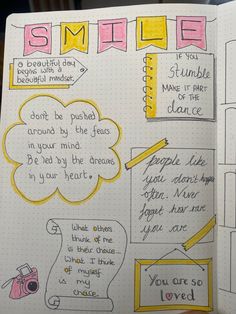 SMILE
a beautiful day
begins with a
beautiful mindset.
IF YOU
Stumble
MAKE IT PART
OF THE
dance
don't be pushed
around by the fears
in your mind.
Be led by the dreams
in your heart.
people like
you don't happen
often. Never
forget how rare
you are
What others
think of me
is their choice...
What I think
of myself
is my
choice.
You are
so loved